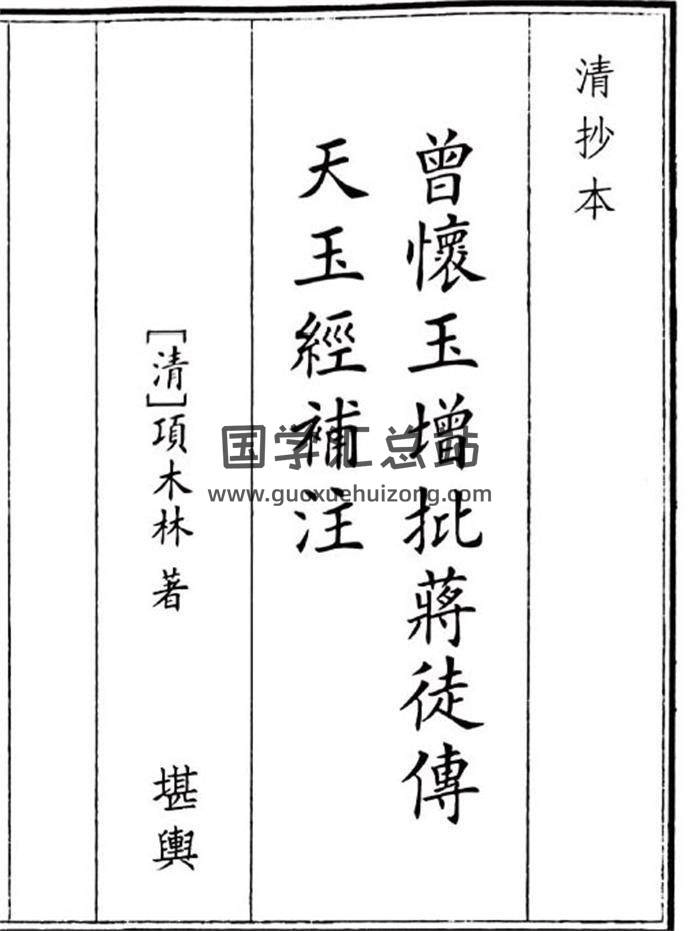 清抄本
曾懷玉增批蔣徒傳
天玉經補注
[清]項木林著
堪輿
国学汇总站
www.guoxuehuizong.com